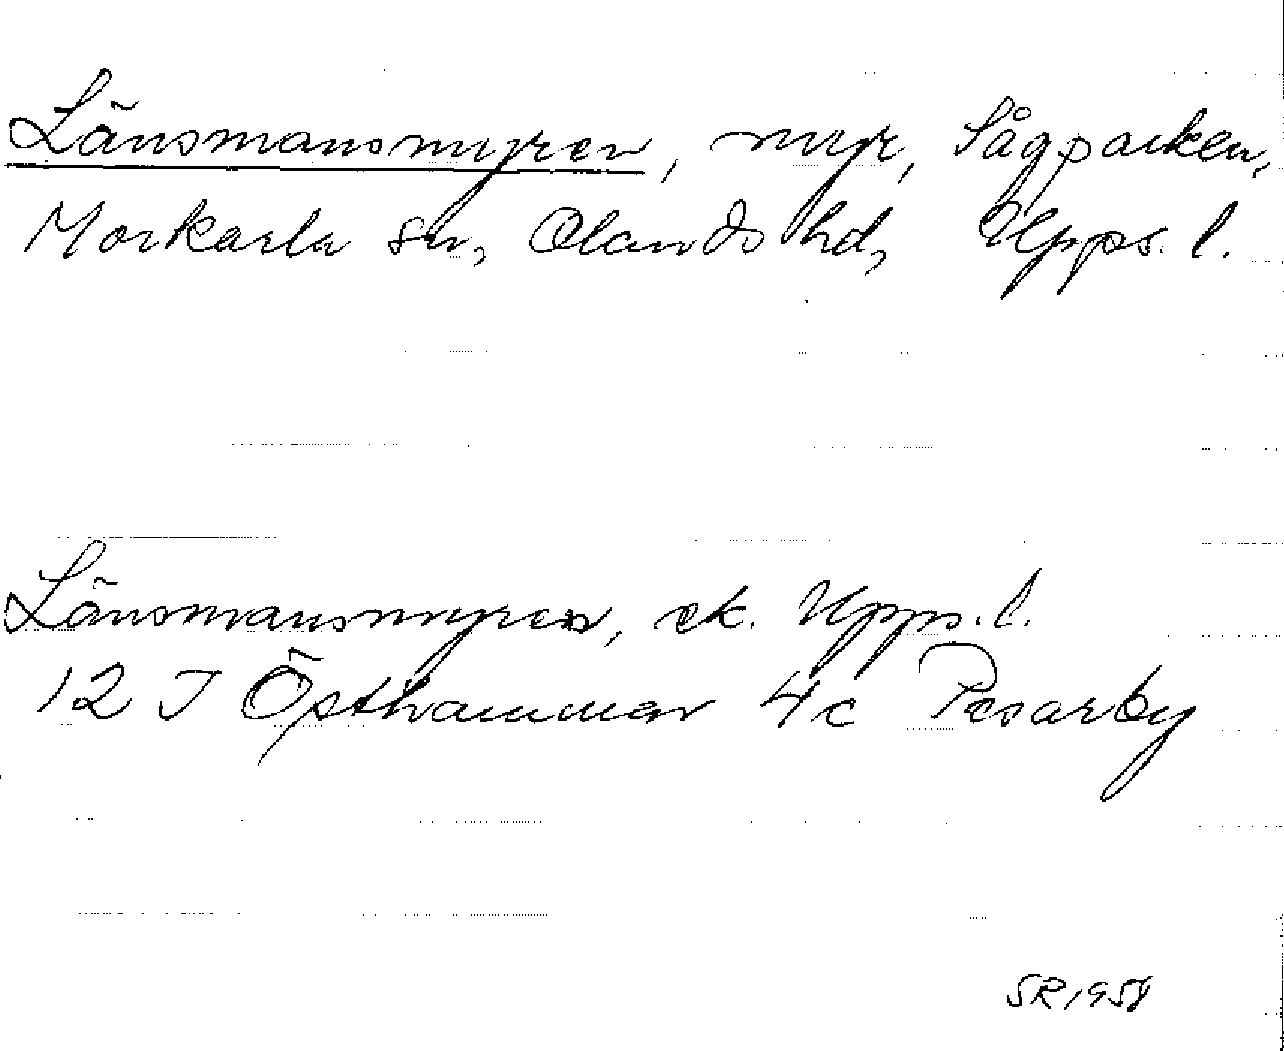 Länsmansmyren, myr, Sågparken,
Morkarla sn, Olands hd, Upps. l.
Länsmansmyren, ek. Upps. l.
12 I Östhammar 4c Pesarby
SR 1958